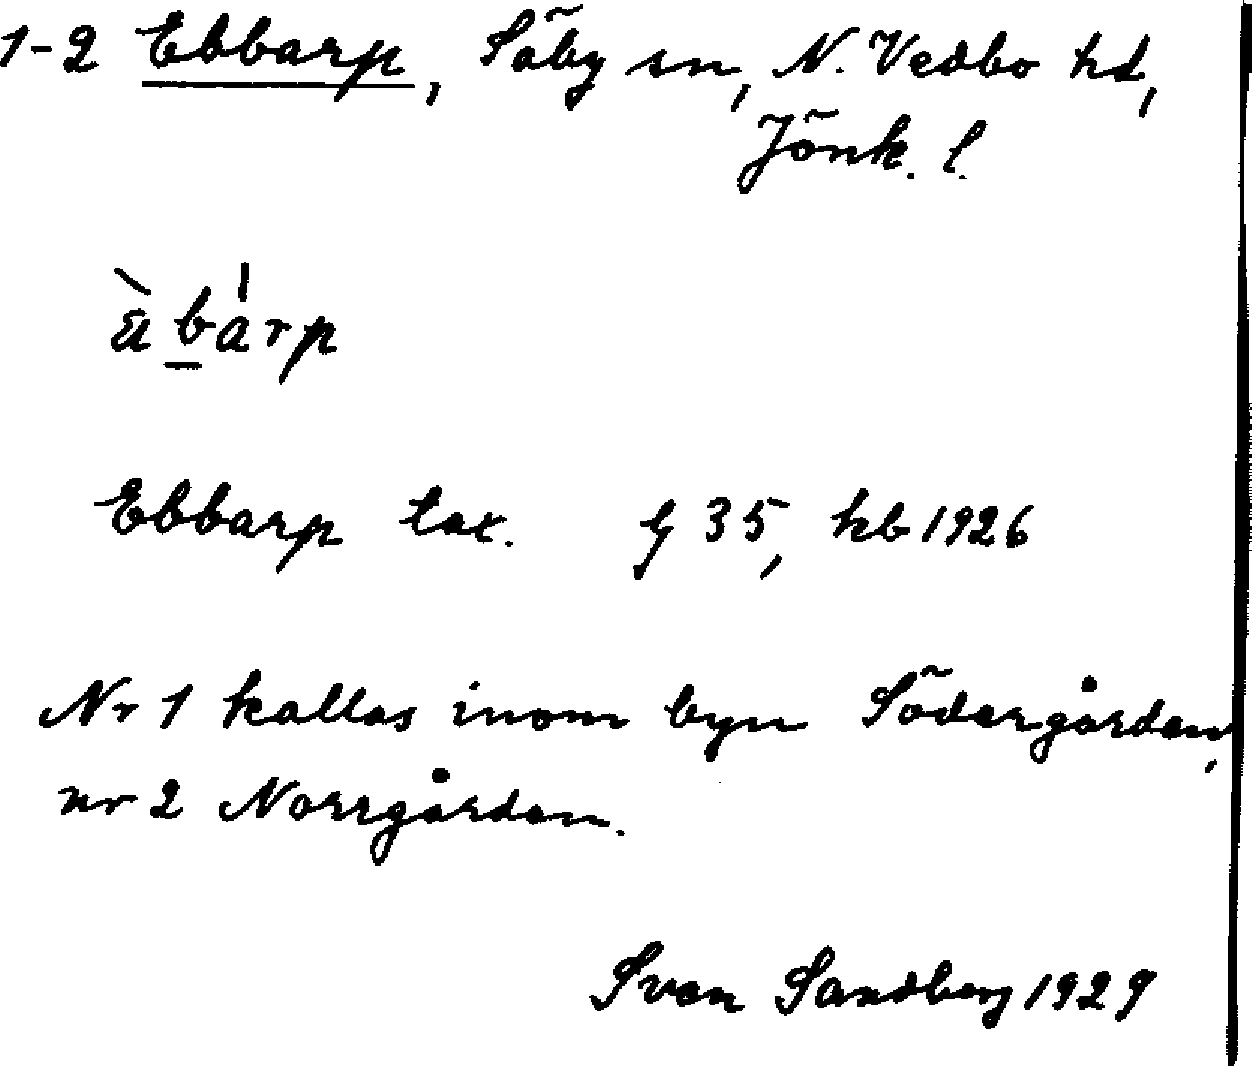 1-2 Ebbarp, Säby sn, N. Vedbo hd,
Jönk. l.
äbarp
Ebbarp tax. § 35, kb 1926
Nr 1 kallas inom byn Södergården,
nr 2 Norrgården.
Sven Sandberg 1929